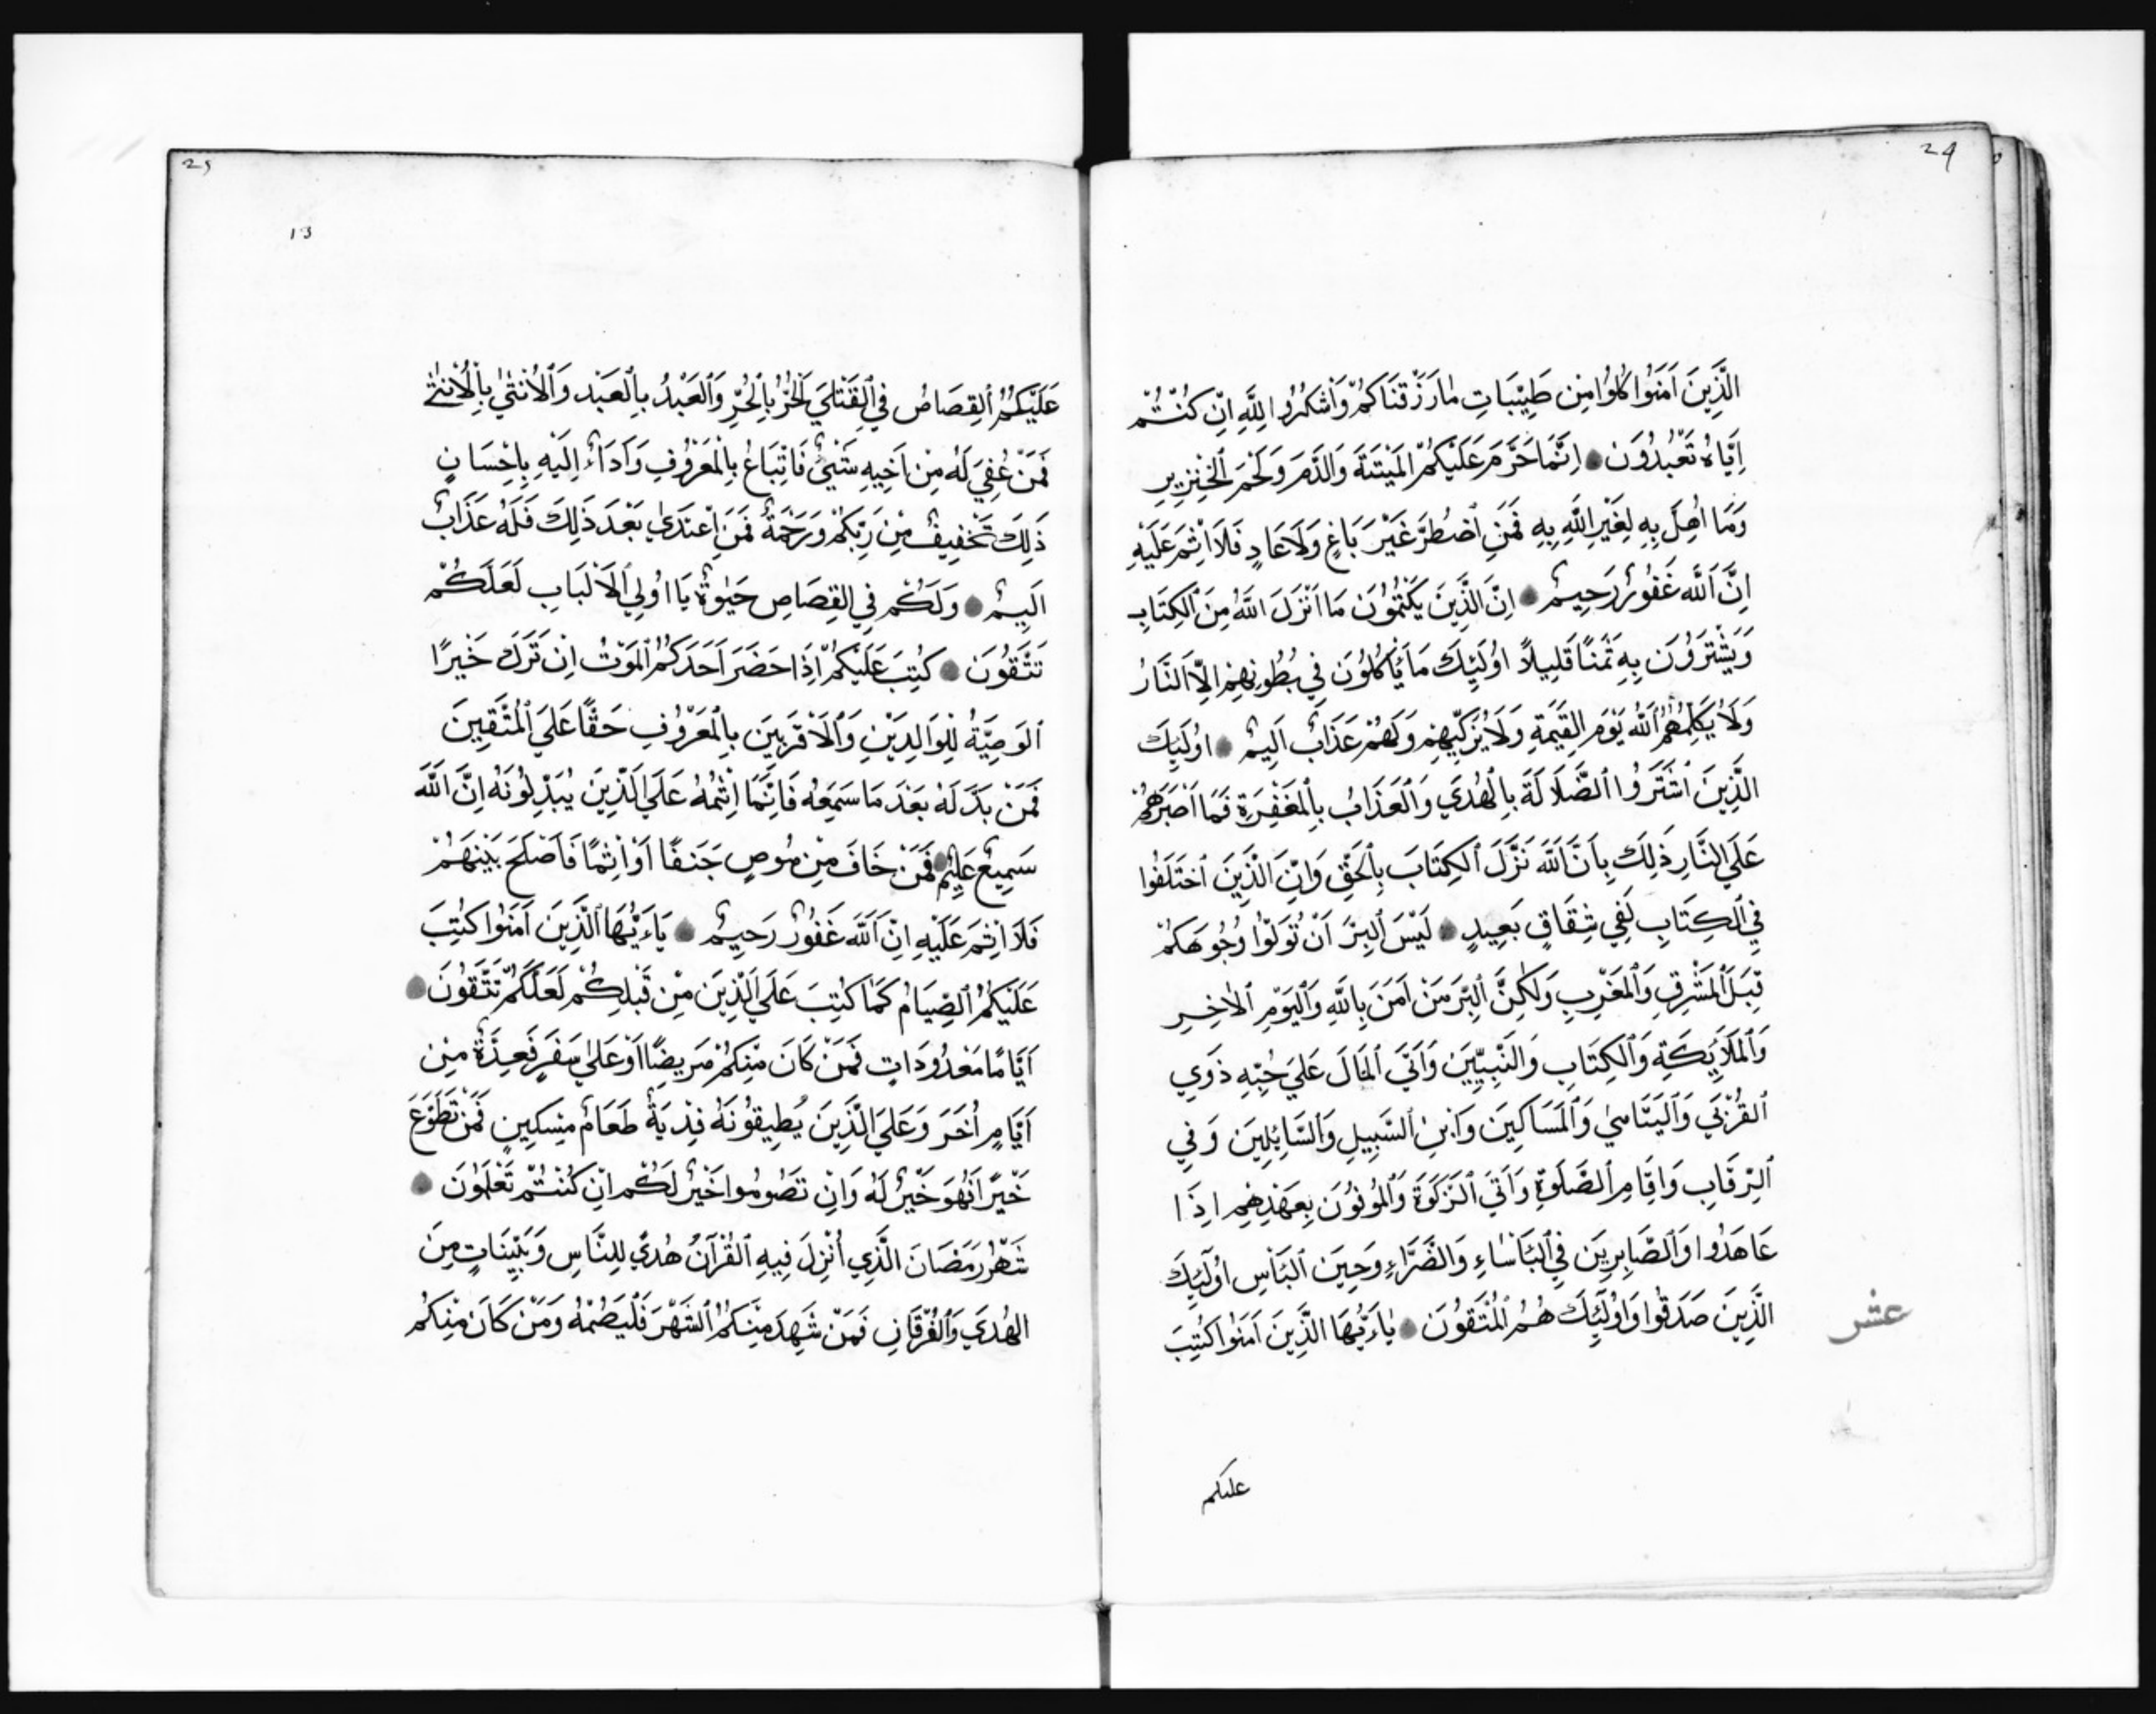 24
الَّذِينَ اٰمَنُوا كُلُوا مِن طَيِّبَاتِ مَارَزَقْنَاكُمْ وَاشْكُرُوا لِلَّهِ اِنْ كُنْتُمْ
اِيَّاهُ تَعْبُدُونَ ۝ اِنَّمَا حَرَّمَ عَلَيْكُمُ الْمَيْتَةَ وَالدَّمَ وَلَحْمَ الْخِنْزِيرِ
وَمَا اُهِلَّ بِهِ لِغَيْرِ اللَّهِ بِهِ فَمَنِ اضْطُرَّ غَيْرَ بَاغٍ وَلَا عَادٍ فَلَا اِثْمَ عَلَيْهِ
اِنَّ اللَّهَ غَفُورٌ رَحِيمٌ ۝ اِنَّ الَّذِينَ يَكْتُمُونَ مَا اَنْزَلَ اللَّهُ مِنَ الْكِتَابِ
وَيَشْتَرُونَ بِهِ ثَمَنًا قَلِيلاً اُولَئِكَ مَا يَأْكُلُونَ فِي بُطُونِهِمْ اِلَّا النَّارَ
وَلَا يُكَلِّمُهُمُ اللَّهُ يَوْمَ الْقِيَمَةِ وَلَا يُزَكِّيهِمْ وَلَهُمْ عَذَابٌ اَلِيمٌ ۝ اُولَئِكَ
الَّذِينَ اشْتَرَوُا الضَّلَالَةَ بِالْهُدَي وَالْعَذَابَ بِالْمَغْفِرَةِ فَمَا اَصْبَرَهُمْ
عَلَي النَّارِ ذَلِكَ بِاَنَّ اللَّهَ نَزَّلَ الْكِتَابَ بِالْحَقِّ وَاِنَّ الَّذِينَ اخْتَلَفُوا
فِي الْكِتَابِ لَفِي شِقَاقٍ بَعِيدٍ ۝ لَيْسَ الْبِرَّ اَنْ تُوَلُّوا وُجُوهَكُمْ
قِبَلَ الْمَشْرِقِ وَالْمَغْرِبِ وَلَكِنَّ الْبِرَّ مَنْ اٰمَنَ بِاللَّهِ وَالْيَوْمِ الْاٰخِرِ
وَالْمَلَائِكَةِ وَالْكِتَابِ وَالنَّبِيِّينَ وَاَتَي الْمَالَ عَلَي حُبِّهِ ذَوِي
الْقُرْبَي وَالْيَتَامَي وَالْمَسَاكِينَ وَابْنَ السَّبِيلِ وَالسَّائِلِينَ وَفِي
الرِّقَابِ وَاَقَامَ الصَّلَوةَ وَاَتَي الزَّكَوةَ وَالْمُوفُونَ بِعَهْدِهِمْ اِذَا
عَاهَدُوا وَالصَّابِرِينَ فِي الْبَأْسَاءِ وَالضَّرَّاءِ وَحِينَ الْبَأْسِ اُولَئِكَ
الَّذِينَ صَدَقُوا وَاُولَئِكَ هُمُ الْمُتَّقُونَ ۝ يَاءَيُّهَا الَّذِينَ اٰمَنُوا كُتِبَ
عشر
عليكم
25
13
عَلَيْكُمُ الْقِصَاصُ فِي الْقَتْلَي الْحُرُّ بِالْحُرِّ وَالْعَبْدُ بِالْعَبْدِ وَالْاُنْثَي بِالْاُنْثَي
فَمَنْ عُفِيَ لَهُ مِنْ اَخِيهِ شَيْئٌ فَاتِّبَاعٌ بِالْمَعْرُوفِ وَاَدَاءٌ اِلَيْهِ بِاِحْسَانٍ
ذَلِكَ تَخْفِيفٌ مِنْ رَبِّكُمْ وَرَحْمَةٌ فَمَنِ اعْتَدَي بَعْدَ ذَلِكَ فَلَهُ عَذَابٌ
اَلِيمٌ ۝ وَلَكُمْ فِي الْقِصَاصِ حَيَوةٌ يَا اُولِي الْاَلْبَابِ لَعَلَّكُمْ
تَتَّقُونَ ۝ كُتِبَ عَلَيْكُمْ اِذَا حَضَرَ اَحَدَكُمُ الْمَوْتُ اِنْ تَرَكَ خَيْرًا
الْوَصِيَّةُ لِلْوَالِدَيْنِ وَالْاَقْرَبِينَ بِالْمَعْرُوفِ حَقًّا عَلَي الْمُتَّقِينَ
فَمَنْ بَدَّلَهُ بَعْدَ مَا سَمِعَهُ فَاِنَّمَا اِثْمُهُ عَلَي الَّذِينَ يُبَدِّلُونَهُ اِنَّ اللَّهَ
سَمِيعٌ عَلِيمٌ ۝ فَمَنْ خَافَ مِنْ مُوصٍ جَنَفًا اَوْ اِثْمًا فَاَصْلَحَ بَيْنَهُمْ
فَلَا اِثْمَ عَلَيْهِ اِنَّ اللَّهَ غَفُورٌ رَحِيمٌ ۝ يَاءَيُّهَا الَّذِينَ اٰمَنُوا كُتِبَ
عَلَيْكُمُ الصِّيَامُ كَمَا كُتِبَ عَلَي الَّذِينَ مِنْ قَبْلِكُمْ لَعَلَّكُمْ تَتَّقُونَ ۝
اَيَّامًا مَعْدُودَاتٍ فَمَنْ كَانَ مِنْكُمْ مَرِيضًا اَوْ عَلَي سَفَرٍ فَعِدَّةٌ مِنْ
اَيَّامٍ اُخَرَ وَعَلَي الَّذِينَ يُطِيقُونَهُ فِدْيَةٌ طَعَامُ مِسْكِينٍ فَمَنْ تَطَوَّعَ
خَيْرًا فَهُوَ خَيْرٌ لَهُ وَاَنْ تَصُومُوا خَيْرٌ لَكُمْ اِنْ كُنْتُمْ تَعْلَمُونَ ۝
شَهْرُ رَمَضَانَ الَّذِي اُنْزِلَ فِيهِ الْقُرْآنُ هُدًي لِلنَّاسِ وَبَيِّنَاتٍ مِنَ
الْهُدَي وَالْفُرْقَانِ فَمَنْ شَهِدَ مِنْكُمُ الشَّهْرَ فَلْيَصُمْهُ وَمَنْ كَانَ مِنْكُمْ